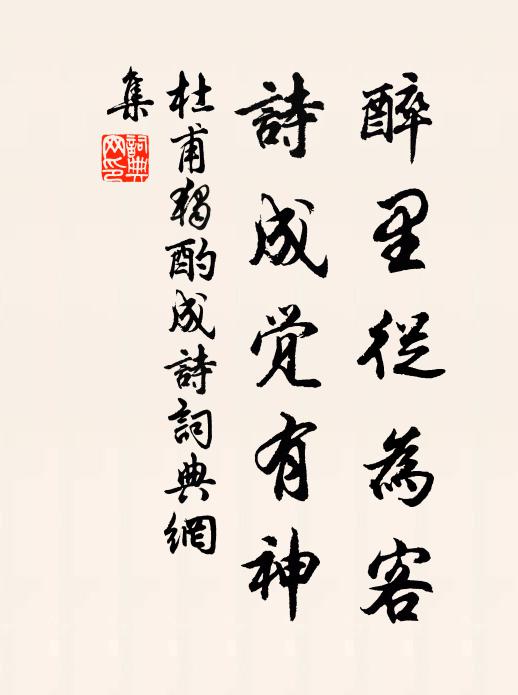 醉里從為客
詩成覚有神
杜甫獨酌成詩詞典網
集
詞典
网印